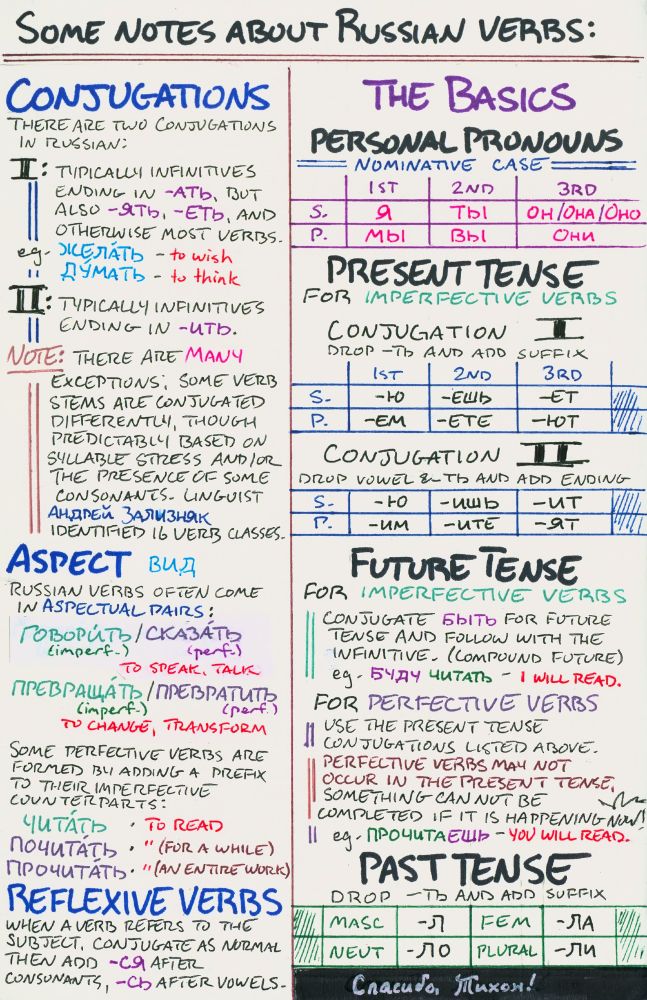 SOME NOTES ABOUT RUSSIAN VERBS:
CONJUGATIONS
THERE ARE TWO CONJUGATIONS
IN RUSSIAN:
I: TYPICALLY INFINITIVES
ENDING IN -АТЬ, BUT
ALSO -ЯТЬ, -ЕТЬ, AND
OTHERWISE MOST VERBS.
eg. ЖЕЛА́ТЬ - to wish
ДУ́МАТЬ - to think
II: TYPICALLY INFINITIVES
ENDING IN -ИТЬ.
NOTE: THERE ARE MANY
EXCEPTIONS; SOME VERB
STEMS ARE CONJUGATED
DIFFERENTLY, THOUGH
PREDICTABLY BASED ON
SYLLABLE STRESS AND/OR
THE PRESENCE OF SOME
CONSONANTS. LINGUIST
АНДРЕЙ ЗАЛИЗНЯК
IDENTIFIED 16 VERB CLASSES.
ASPECT ВИД
RUSSIAN VERBS OFTEN COME
IN ASPECTUAL PAIRS:
ГОВОРИ́ТЬ/СКАЗА́ТЬ
(imperf.) (perf.)
TO SPEAK, TALK
ПРЕВРАЩА́ТЬ/ПРЕВРАТИ́ТЬ
(imperf.) (perf.)
TO CHANGE, TRANSFORM
SOME PERFECTIVE VERBS ARE
FORMED BY ADDING A PREFIX
TO THEIR IMPERFECTIVE
COUNTERPARTS:
ЧИТА́ТЬ · TO READ
ПОЧИТА́ТЬ · " (FOR A WHILE)
ПРОЧИТА́ТЬ · " (AN ENTIRE WORK)
REFLEXIVE VERBS
WHEN A VERB REFERS TO THE
SUBJECT, CONJUGATE AS NORMAL
THEN ADD -СЯ AFTER
CONSONANTS, -СЬ AFTER VOWELS.
THE BASICS
PERSONAL PRONOUNS
NOMINATIVE CASE
1ST 2ND 3RD
S. Я ТЫ ОН/ОНА/ОНО
P. МЫ ВЫ ОНИ
PRESENT TENSE
FOR IMPERFECTIVE VERBS
CONJUGATION I
DROP -ТЬ AND ADD SUFFIX
1ST 2ND 3RD
S. -Ю -ЕШЬ -ЕТ
P. -ЕМ -ЕТЕ -ЮТ
CONJUGATION II
DROP VOWEL & -ТЬ AND ADD ENDING
S. -Ю -ИШЬ -ИТ
P. -ИМ -ИТЕ -ЯТ
FUTURE TENSE
FOR IMPERFECTIVE VERBS
CONJUGATE БЫТЬ FOR FUTURE
TENSE AND FOLLOW WITH THE
INFINITIVE. (COMPOUND FUTURE)
eg. БУДУ ЧИТАТЬ - I WILL READ.
FOR PERFECTIVE VERBS
USE THE PRESENT TENSE
CONJUGATIONS LISTED ABOVE.
PERFECTIVE VERBS MAY NOT
OCCUR IN THE PRESENT TENSE,
SOMETHING CAN NOT BE
COMPLETED IF IT IS HAPPENING NOW!
eg. ПРОЧИТАЕШЬ - YOU WILL READ.
PAST TENSE
DROP -ТЬ AND ADD SUFFIX
MASC -Л FEM -ЛА
NEUT -ЛО PLURAL -ЛИ
Спасибо, Тихон!